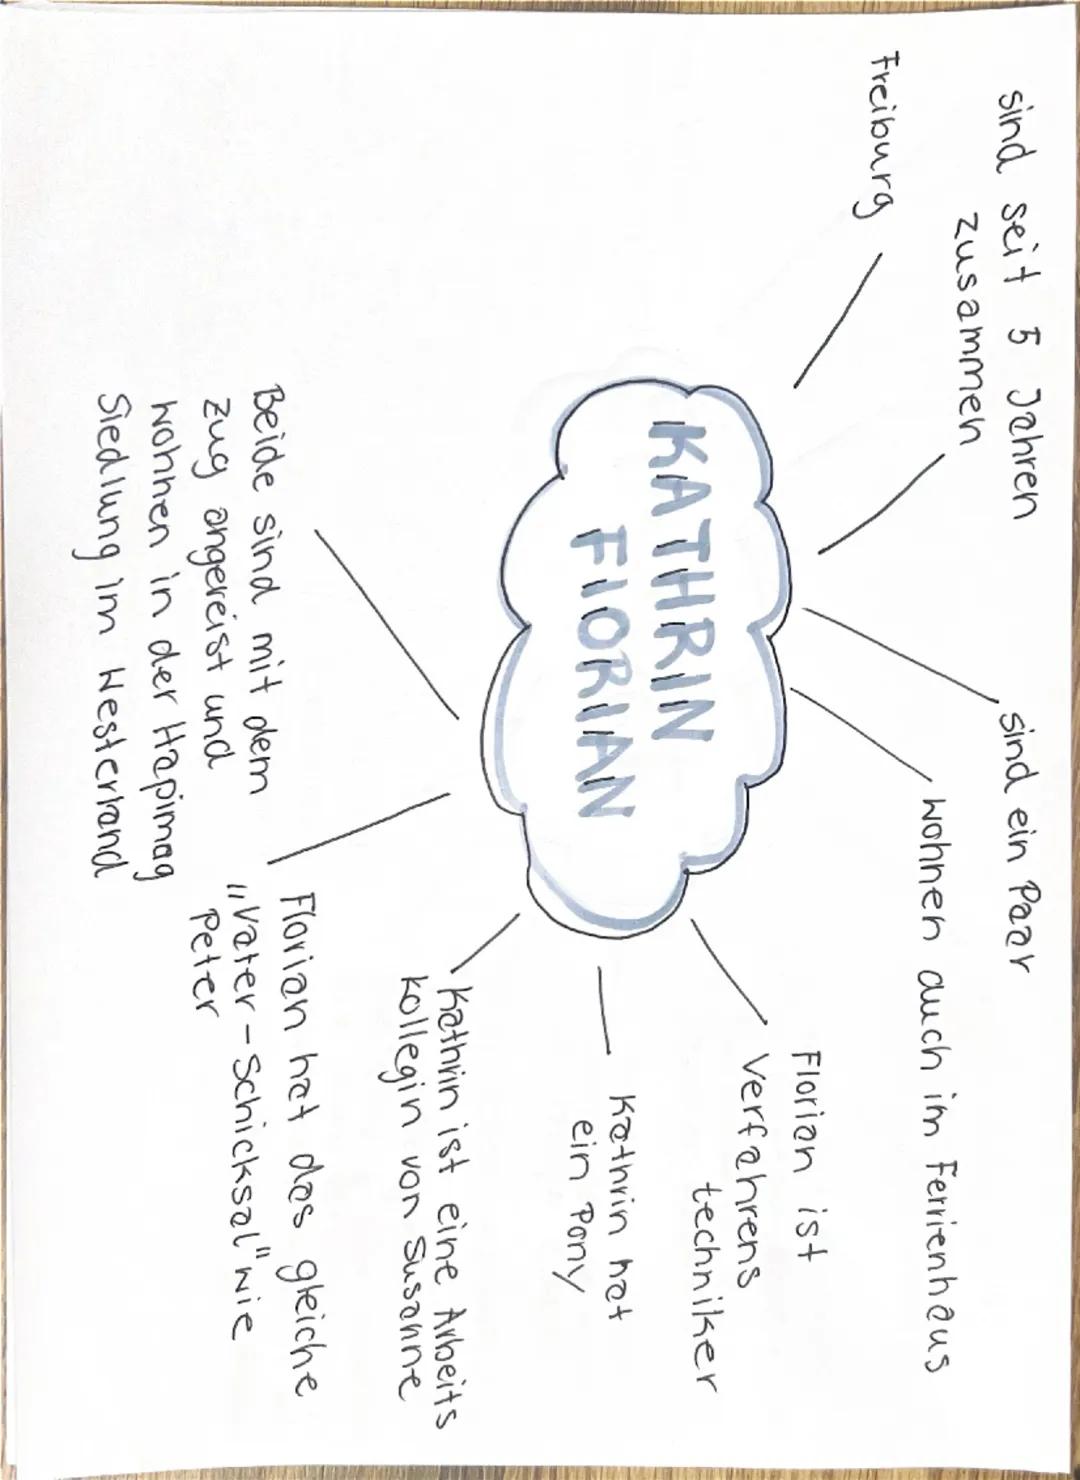 sind seit 5 Jahren
zusammen
Freiburg
sind ein Paar
wohnen auch im Ferrienhaus
KATHRIN
FlORIAN
Florian ist
Verfahrens
techniker
Kathrin hat
ein Pony
Kathrin ist eine Arbeits
kollegin von Susanne
Beide sind mit dem
zug angereist und
wohnen in der Hapimag
Siedlung im Westerland
Florian hat das gleiche
„Vater-Schicksal" wie
Peter